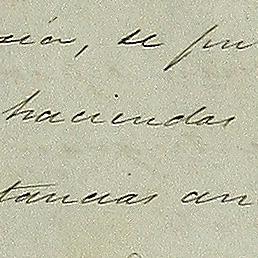 sión, se pu
haciendas
tancias an